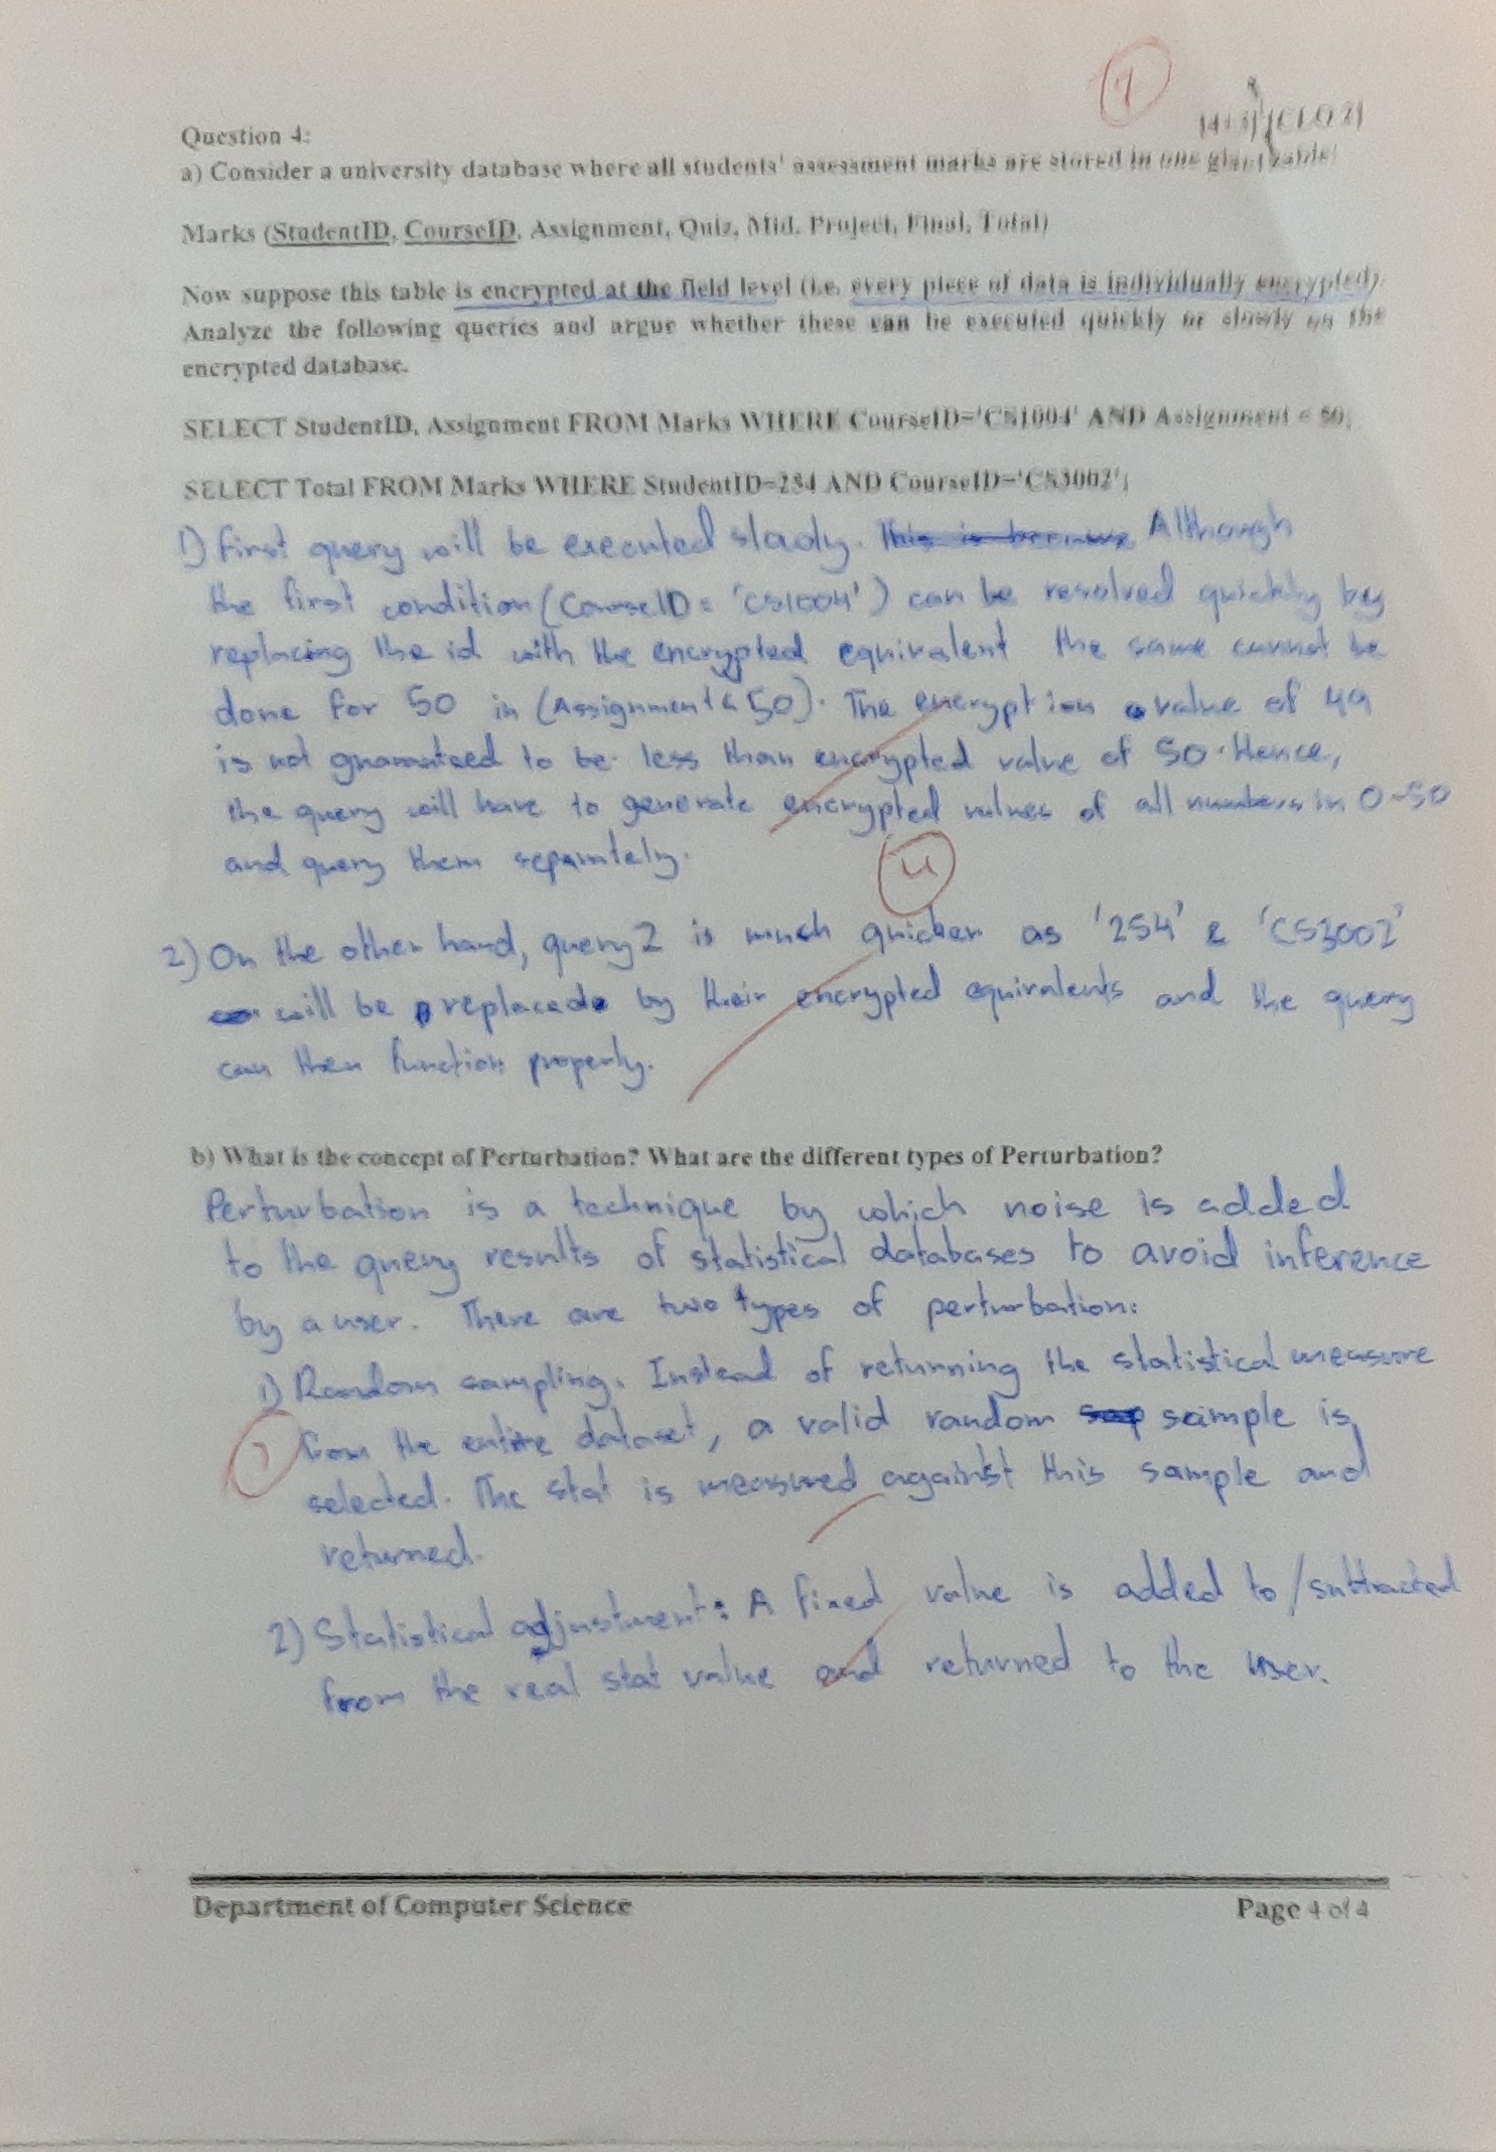 7
Question 4:
[4+3] [CLO 2]
a) Consider a university database where all students' assessment marks are stored in one giant table:
Marks (StudentID, CourseID, Assignment, Quiz, Mid, Project, Final, Total)
Now suppose this table is encrypted at the field level (i.e. every piece of data is individually encrypted).
Analyze the following queries and argue whether these can be executed quickly or slowly on the
encrypted database.
SELECT StudentID, Assignment FROM Marks WHERE CourseID='CS1004' AND Assignment < 50;
SELECT Total FROM Marks WHERE StudentID=254 AND CourseID='CS3002';
1) first query will be executed slowly. This is because Although
the first condition (CourseID = 'CS1004') can be resolved quickly by
replacing the id with the encrypted equivalent the same cannot be
done for 50 in (Assignment < 50). The encryption value of 49
is not guaranteed to be less than encrypted value of 50. Hence,
the query will have to generate encrypted values of all numbers in 0-50
and query them separately.
4
2) On the other hand, query 2 is much quicker as '254' & 'CS3002'
will be replaced by their encrypted equivalents and the query
can then function properly.
b) What is the concept of Perturbation? What are the different types of Perturbation?
Perturbation is a technique by which noise is added
to the query results of statistical databases to avoid inference
by a user. There are two types of perturbation:
1) Random sampling. Instead of returning the statistical measure
from the entire dataset, a valid random sample is
selected. The stat is measured against this sample and
returned.
2) Statistical adjustment: A fixed value is added to/subtracted
from the real stat value and returned to the user.
Department of Computer Science
Page 4 of 4